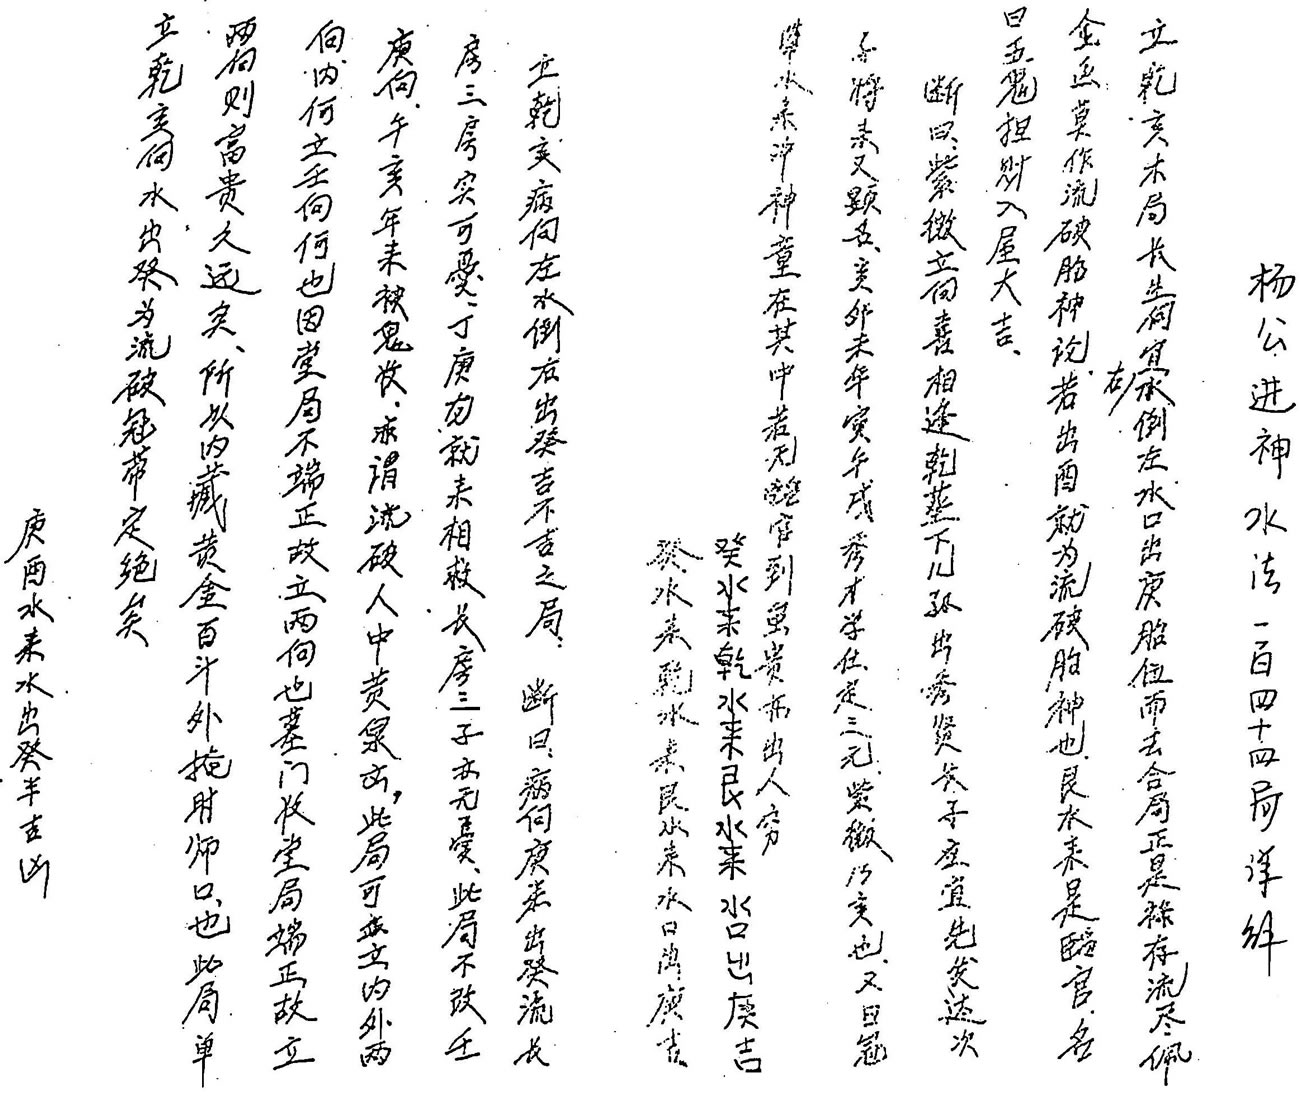 杨公进神水法一百四十四局详解
立乾亥木局长生向宜右水倒左水口出庚胎位而去合局正是禄存流尽佩
金鱼莫作流破胎神论若出酉就为流破胎神也艮水来是临官名
曰五鬼担财入屋大吉、
断曰、紫微立向喜相逢乾葬下儿孙出秀贤长子应宜先发达次
子将来又显名、亥卯未年寅午戌秀才学仕定三元紫微乃亥也、又曰冠
带水来冲神童在其中若无临官到虽贵亦出人穷
癸水来乾水来艮水来水口出庚吉
癸水来乾水来艮水来水口出庚吉
立乾亥病向左水倒右出癸吉不吉之局、断曰、病向庚来出癸流长
房三房实可忧、丁庚方就来相救长房三子亦无忧、此局不改壬
庚向、午亥年来被鬼收、求谓流破人中黄泉亡，此局可立内外两
向内何立壬向何也因堂局不端正故立两向也墓门收堂局端正故立
两向则富贵久远矣、所以内藏黄金百斗外掩时师口也此局单
立乾亥向水出癸为流破冠带定绝矣
庚酉水来水出癸半吉凶